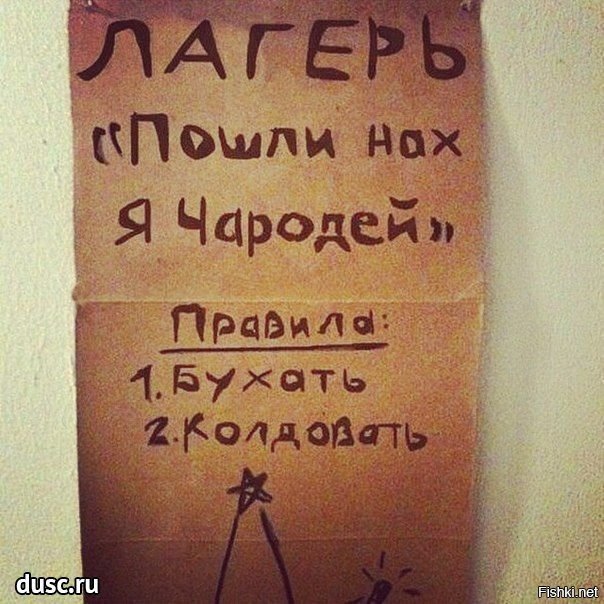 ЛАГЕРЬ
«Пошли нах
Я Чародей»
Правила:
1. Бухать
2. Колдовать
dusc.ru
Fishki.net